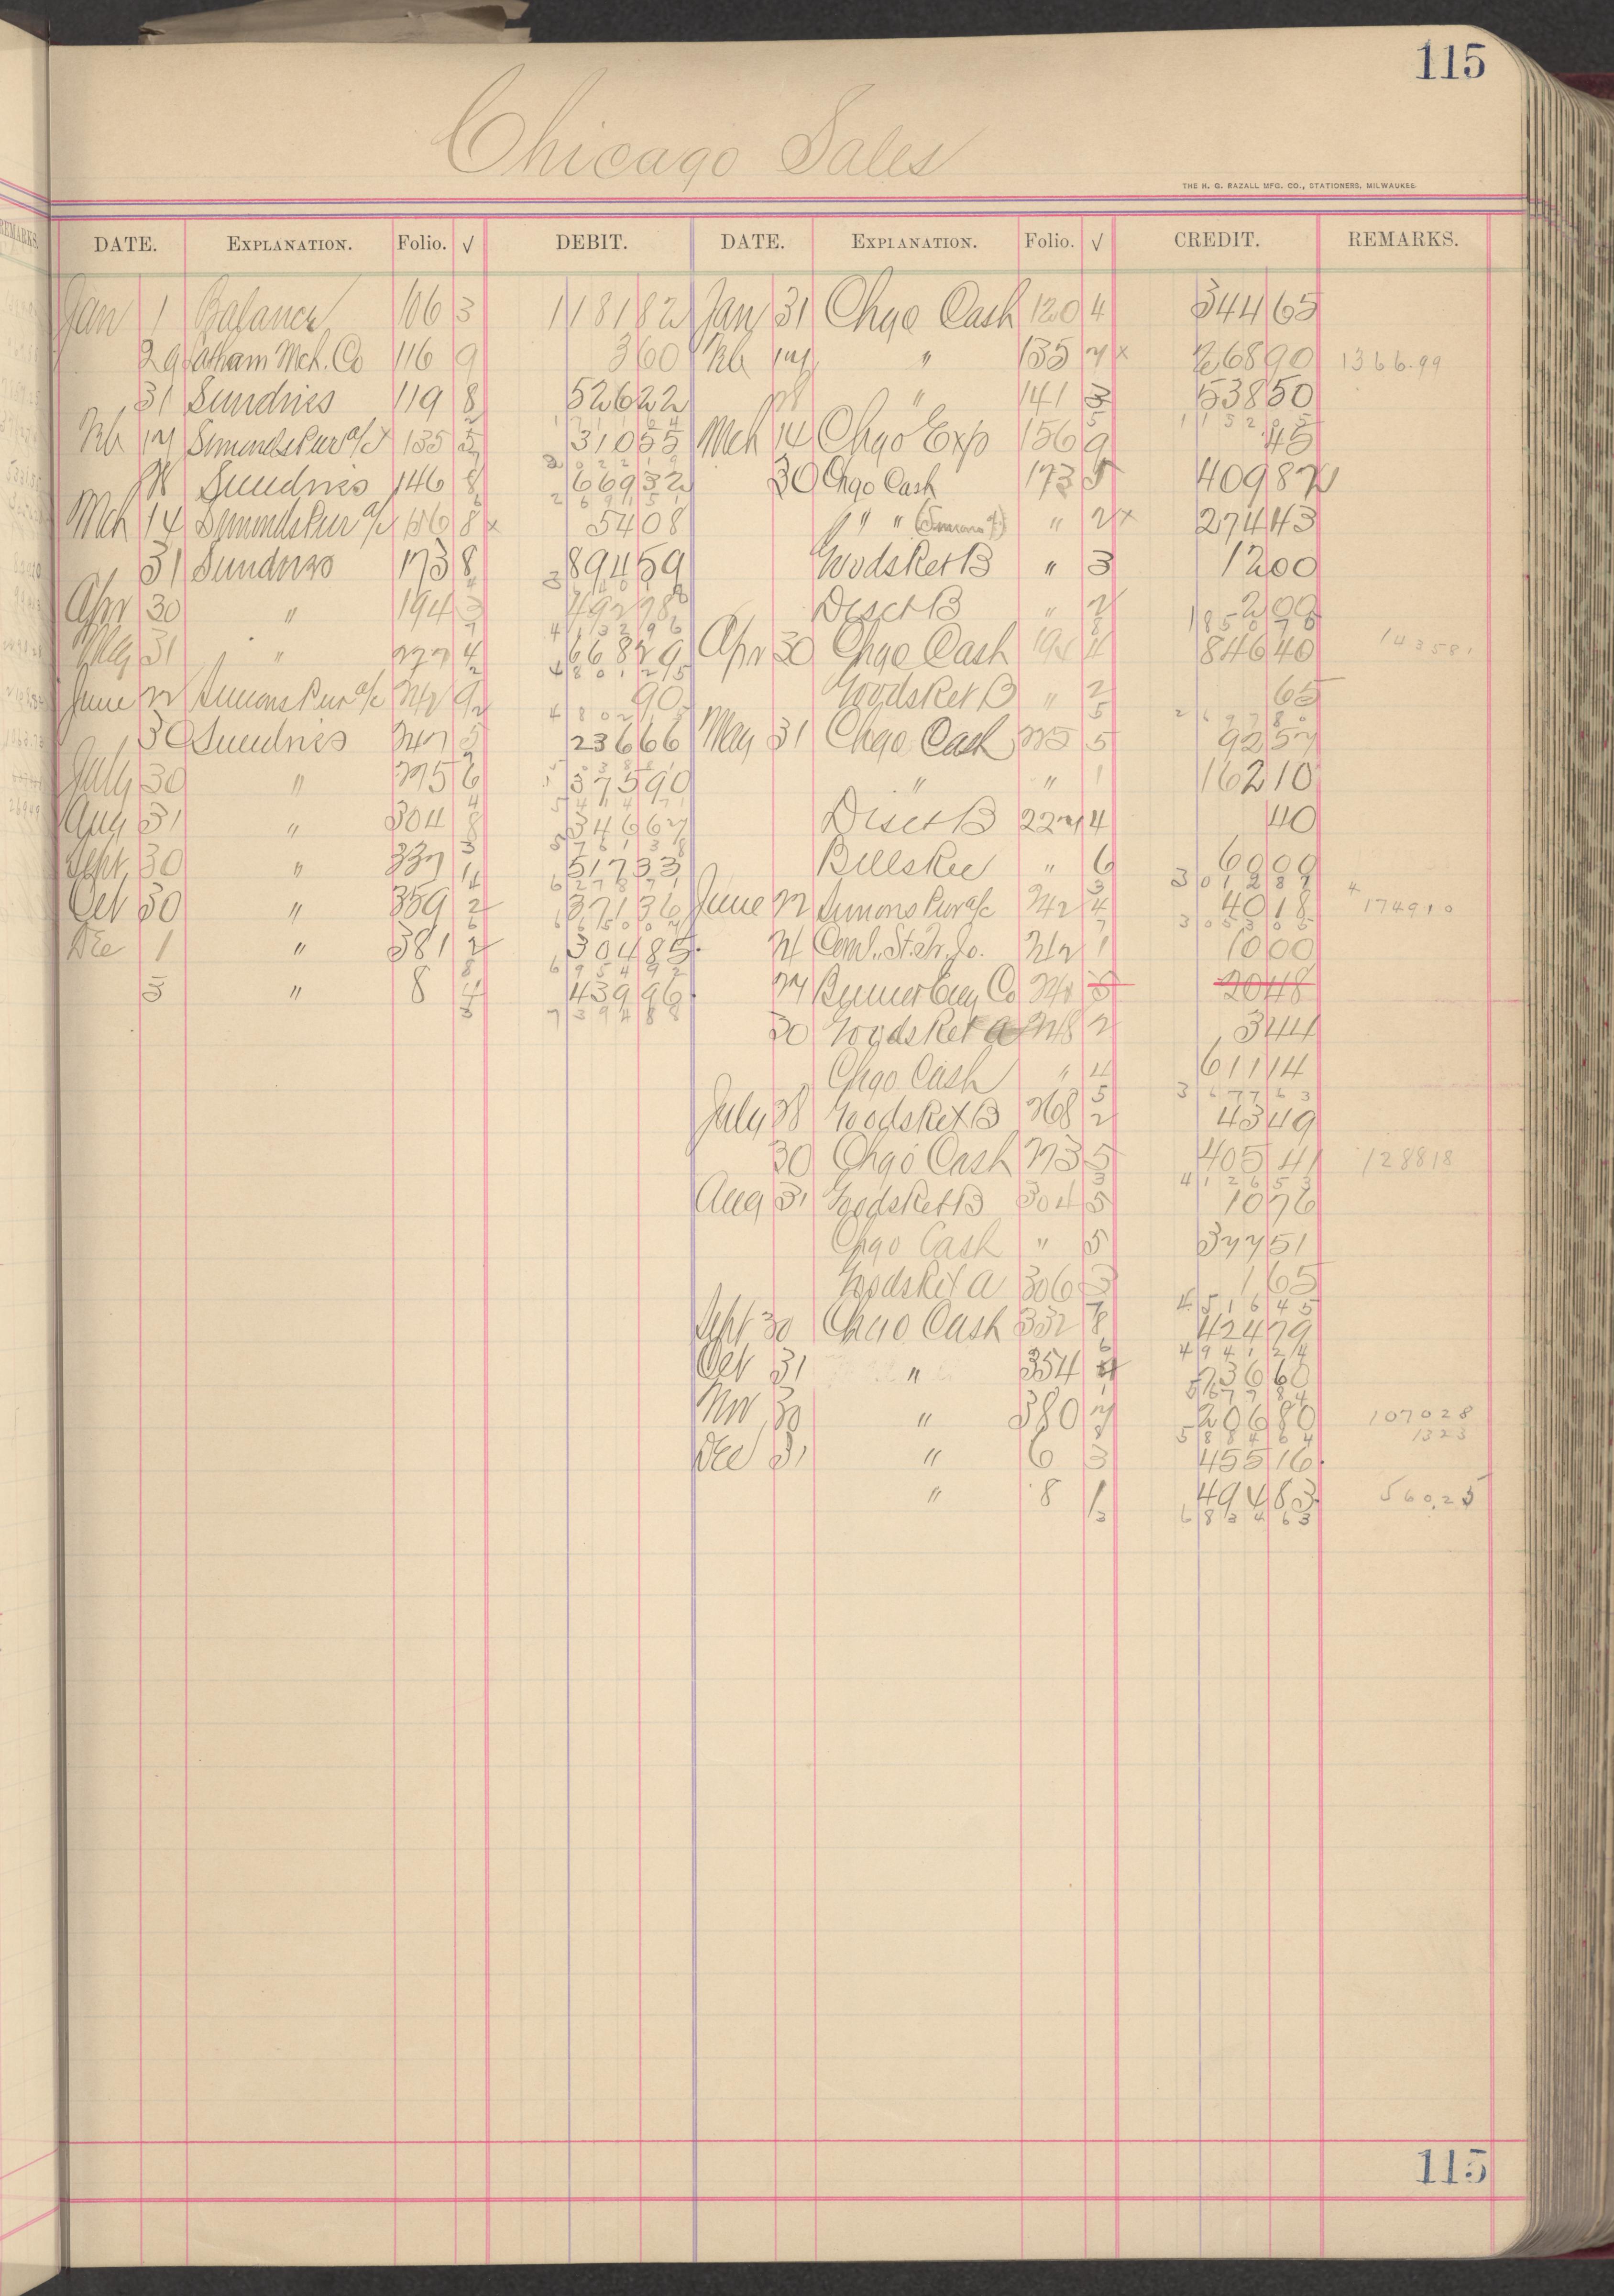 115
Chicago Sales
THE H. G. RAZALL MFG. CO., STATIONERS, MILWAUKEE.
DATE. EXPLANATION. Folio. √ DEBIT. DATE. EXPLANATION. Folio. √ CREDIT. REMARKS.
Jan 1 Balance 106 3 1 181 82 Jan 31 Chgo Cash 120 4 344 65
29 Latham Mch. Co 116 9 3 60 Feb 14 " 135 2 x 268 90 1366.99
31 Sundries 119 8 526 22 28 " 141 3 538 50
1711 64 1152 05
Feb 14 Simonds Pur a/c 135 5 310 55 Mch 14 Chgo Exp 156 9 45
2022 19
28 Sundries 146 8 669 32 30 Chgo Cash 173 5 409 82
2691 51
Mch 14 Simonds Pur a/c 156 8 x 54 08 " " " 2 x 274 43
31 Sundries 173 8 894 59 Woodsket B " 3 12 00
Apr 30 " 194 3 492 78 Disct B " 2 2 00
4132 96 1850 75
May 31 " 227 4 668 29 Apr 30 Chgo Cash 194 4 846 40 1435 81
4801 25
June 22 Simons Pur a/c 242 9 90 Woodsket B " 2 65
4802 15 2697 80
30 Sundries 247 5 236 66 May 31 Chgo Cash 225 5 92 57
5038 81
July 30 " 275 6 375 90 " " 1 162 10
5414 71
Aug 31 " 304 8 346 67 Disct B 227 4 40
5761 38
Sept 30 " 337 517 33 Billskee " 6 60 00
6278 71 3012 87
Oct 30 " 359 2 371 36 June 22 Simons Pur a/c 242 4 40 18 1749 10
6650 07 3053 05
Dec 1 " 381 2 304 85 24 242 1 10 00
6954 92
3 " 8 4 439 96 27 242 3 20 48
7394 88
30 Woodsket a 248 2 3 44
Chgo Cash " 4 611 14
3677 63
July 28 Woodsket B 268 2 43 49
30 Chgo Cash 273 5 405 41 1288 18
4126 53
Aug 31 Woodsket B 304 5 10 76
Chgo Cash " 5 377 51
Woodsket a 306 3 1 65
4516 45
Sept 30 Chgo Cash 332 8 424 79
4941 24
Oct 31 " 354 4 736 60
5677 84
Nov 30 " 380 7 206 80 1070 28
5884 64 13 23
Dec 31 " 6 3 455 16
" 8 1 494 83 560.25
6834 63
115